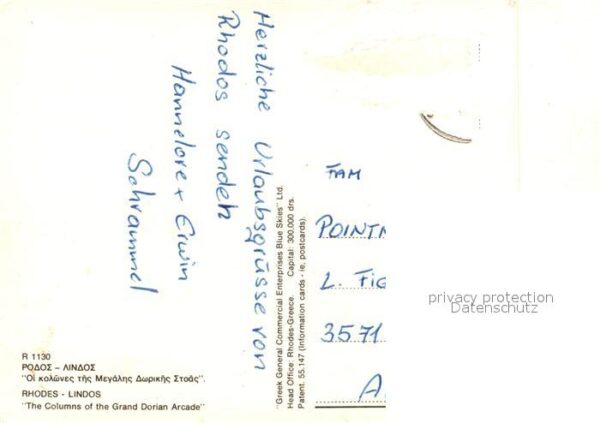 Herzliche Urlaubsgrüsse von
Rhodos senden
Hannelore + Erwin
Schrammel
R 1130
ΡΟΔΟΣ – ΛΙΝΔΟΣ
"Οἱ κολῶνες τῆς Μεγάλης Δωρικῆς Στοᾶς".
RHODES - LINDOS
"The Columns of the Grand Dorian Arcade"
"Greek General Commercial Enterprises Blue Skies" Ltd.
Head Office: Rhodes-Greece. Capital: 300,000 drs.
Patent. 55.147 (Information cards - ie, postcards).
FAM
POINTN
L. FIG
3571
A
privacy protection
Datenschutz